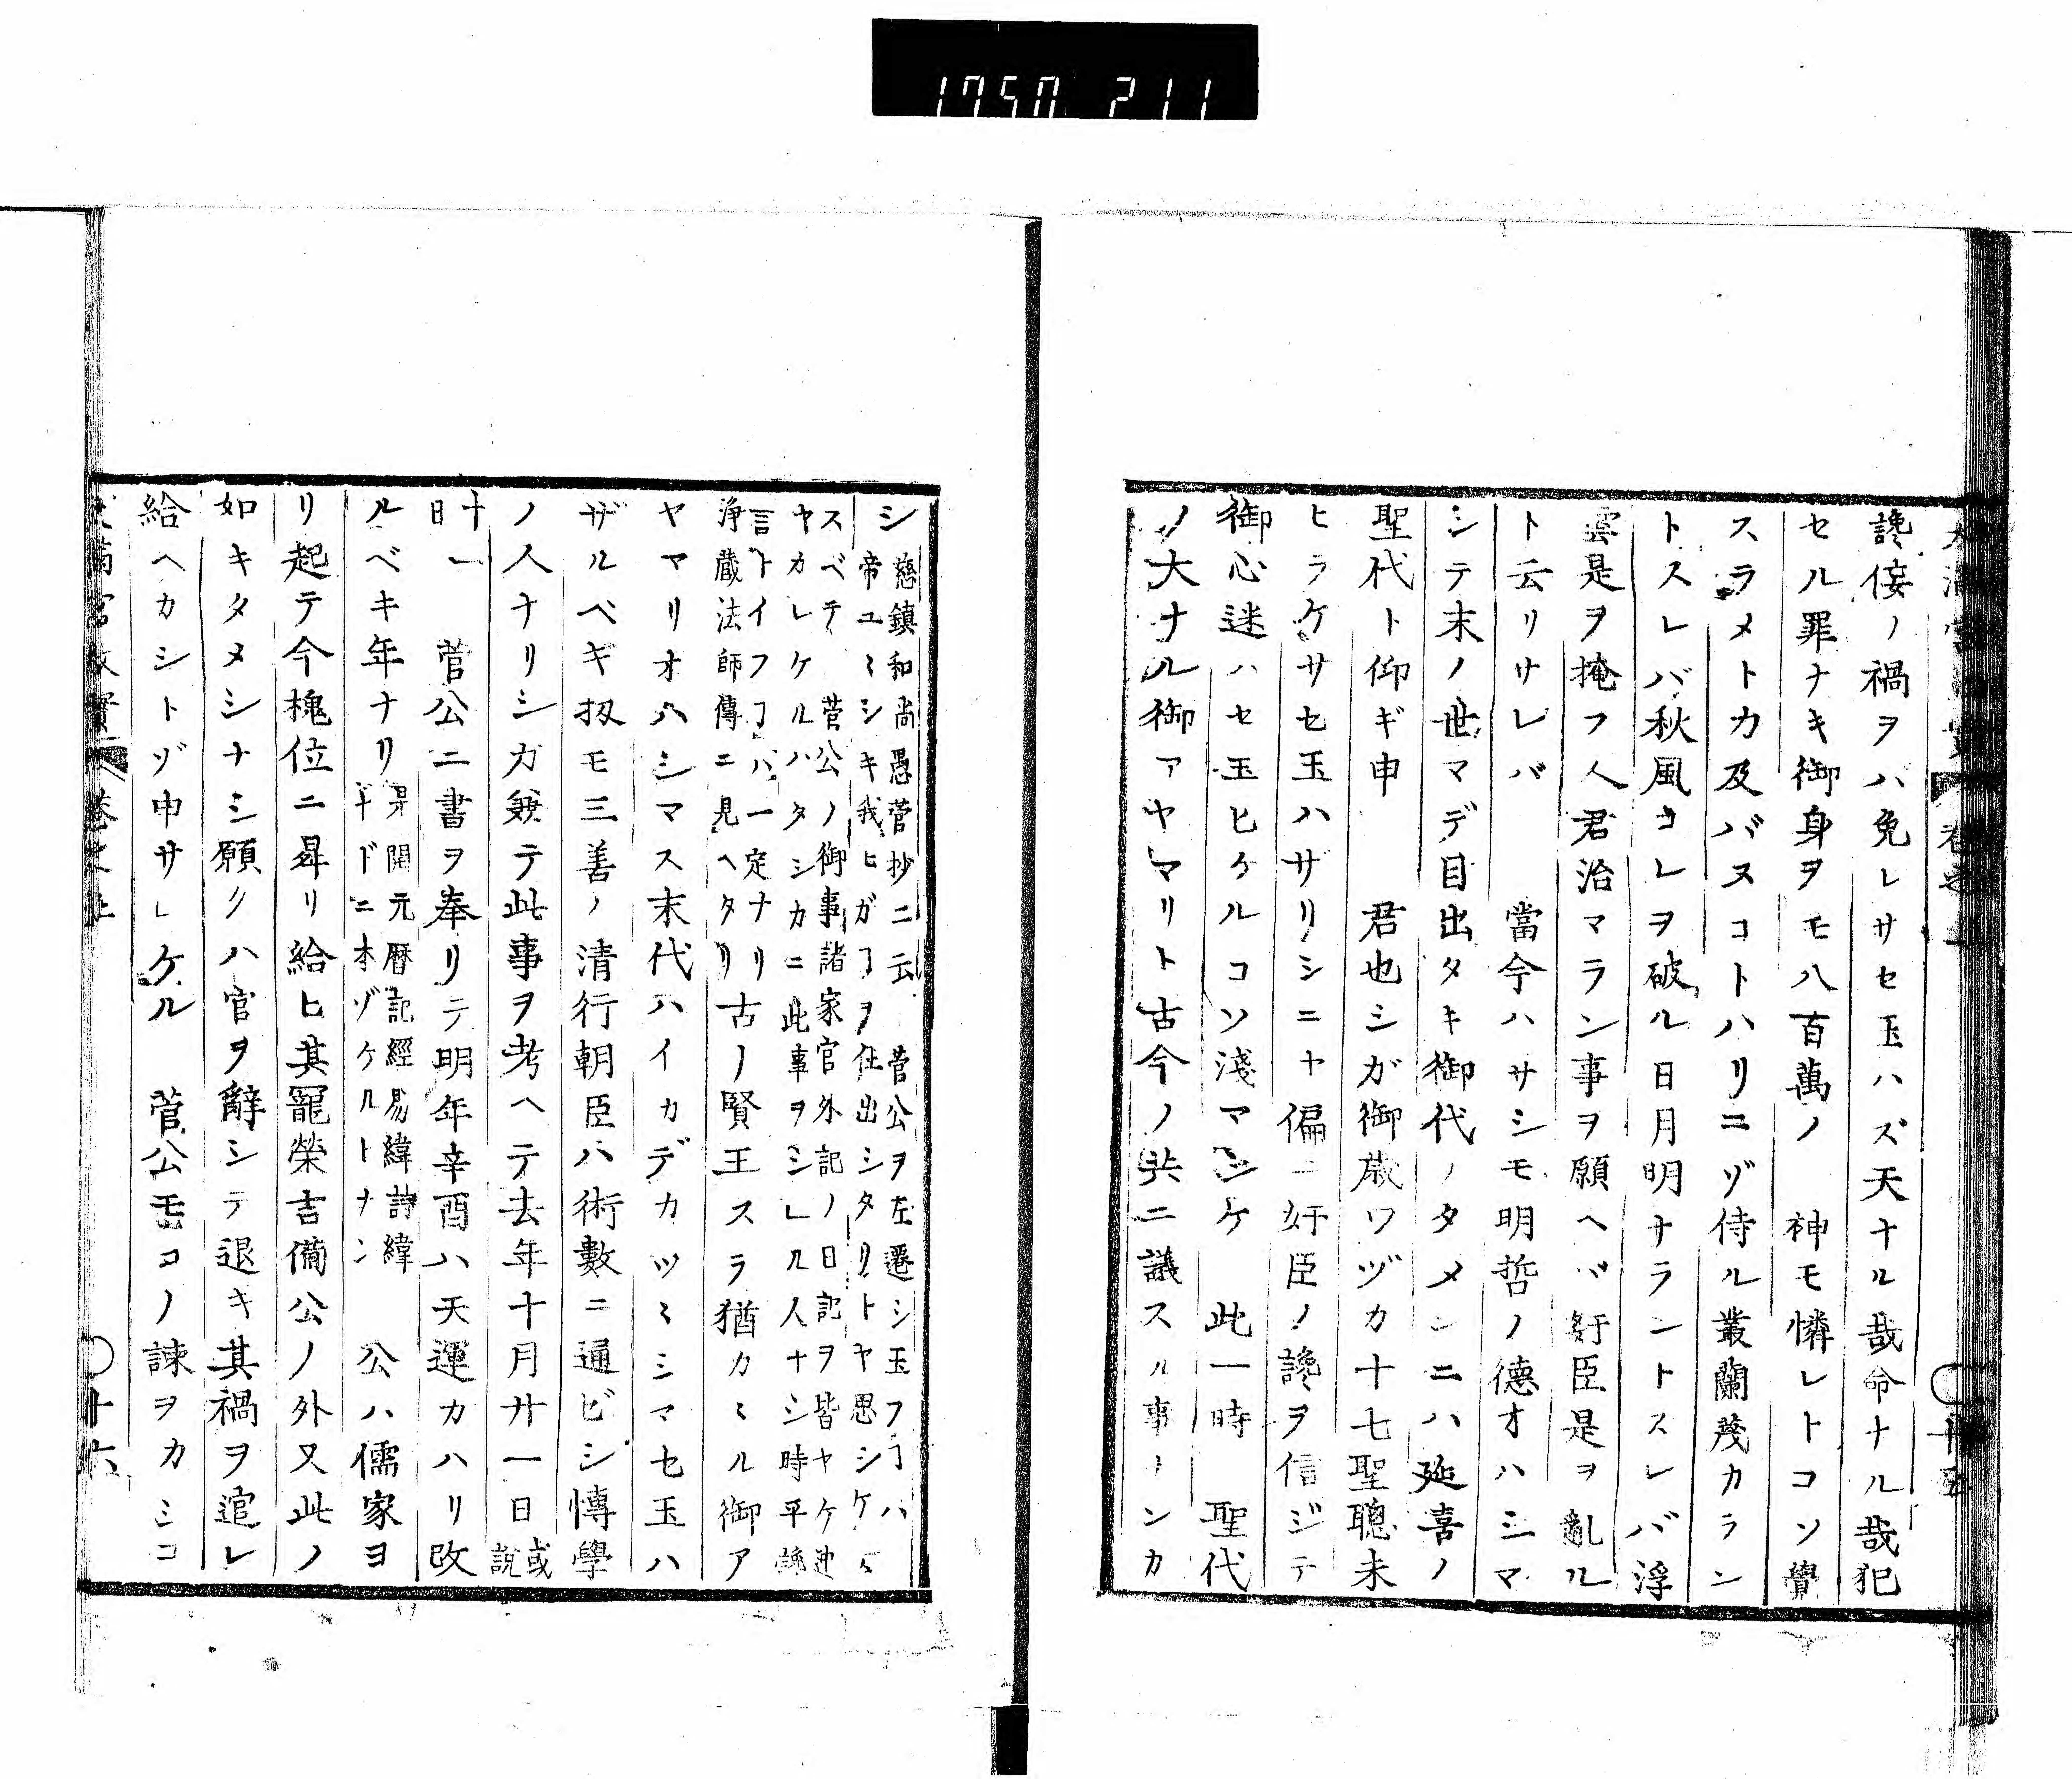 1750 211
讒侫ノ禍ヲハ免レサセ玉ハズ天ナル哉命ナル哉犯
セル罪ナキ御身ヲモ八百萬ノ　神モ憐レトコソ覺
スラメトカ及バヌコトハリニゾ侍ル叢蘭茂カラン
トスレバ秋風コレヲ破ル日月明ナラントスレバ浮
雲是ヲ掩フ人君治マラン事ヲ願ヘバ奸臣是ヲ亂ル
ト云リサレバ　當今ハサシモ明哲ノ德オハシマ
シテ末ノ世マデ目出タキ御代ノタメシニハ延喜ノ
聖代ト仰ギ申　君也シガ御歳ワヅカ十七聖聰未
ヒラケサセ玉ハサリシニヤ偏ニ奸臣ノ讒ヲ信ジテ
御心迷ハセ玉ヒケルコソ淺マシケ　此一時　聖代
ノ大ナル御アヤマリト古今ノ共ニ議スル事ナンカ
シ
慈鎮和尚愚菅抄ニ云　菅公ヲ左遷シ玉フヿハ
帝ユヽシキ我ヒガヿヲ仕出シタリトヤ思シケン
スベテ　菅公ノ御事諸家官外記ノ日記ヲ皆ヤケ迚
ヤカレケルハタシカニ此事ヲシレル人ナシ時平讒
言トイフヿハ一定ナリ
浄蔵法師傳ニ見ヘタリ
古ノ賢王スラ猶カヽル御ア
ヤマリオハシマス末代ハイカデカツヽミシマセ玉ハ
ザルベキ扨モ三善ノ清行朝臣ハ術數ニ通ビシ博學
ノ人ナリシカ兼テ此事ヲ考ヘテ去年十月廿一日
或說
十一日
菅公ニ書ヲ奉リテ明年辛酉ハ天運カハリ改
ルベキ年ナリ
是開元暦記經易緯詩緯
ナドニ本ゾケルトナン
公ハ儒家ヨ
リ起テ今槐位ニ昇リ給ヒ其寵榮吉備公ノ外又此ノ
如キタメシナシ願クハ官ヲ辭シテ退キ其禍ヲ逭レ
給ヘカシトゾ申サレケル　菅公モコノ諫ヲカシコ
十六